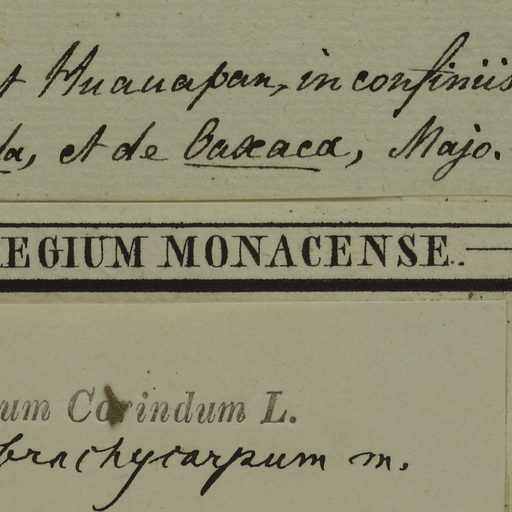 t Huauapan, in confiniis
la, et de Oaxaca, Majo.
EGIUM MONACENSE.
um Corindum L.
brachycarpum m.